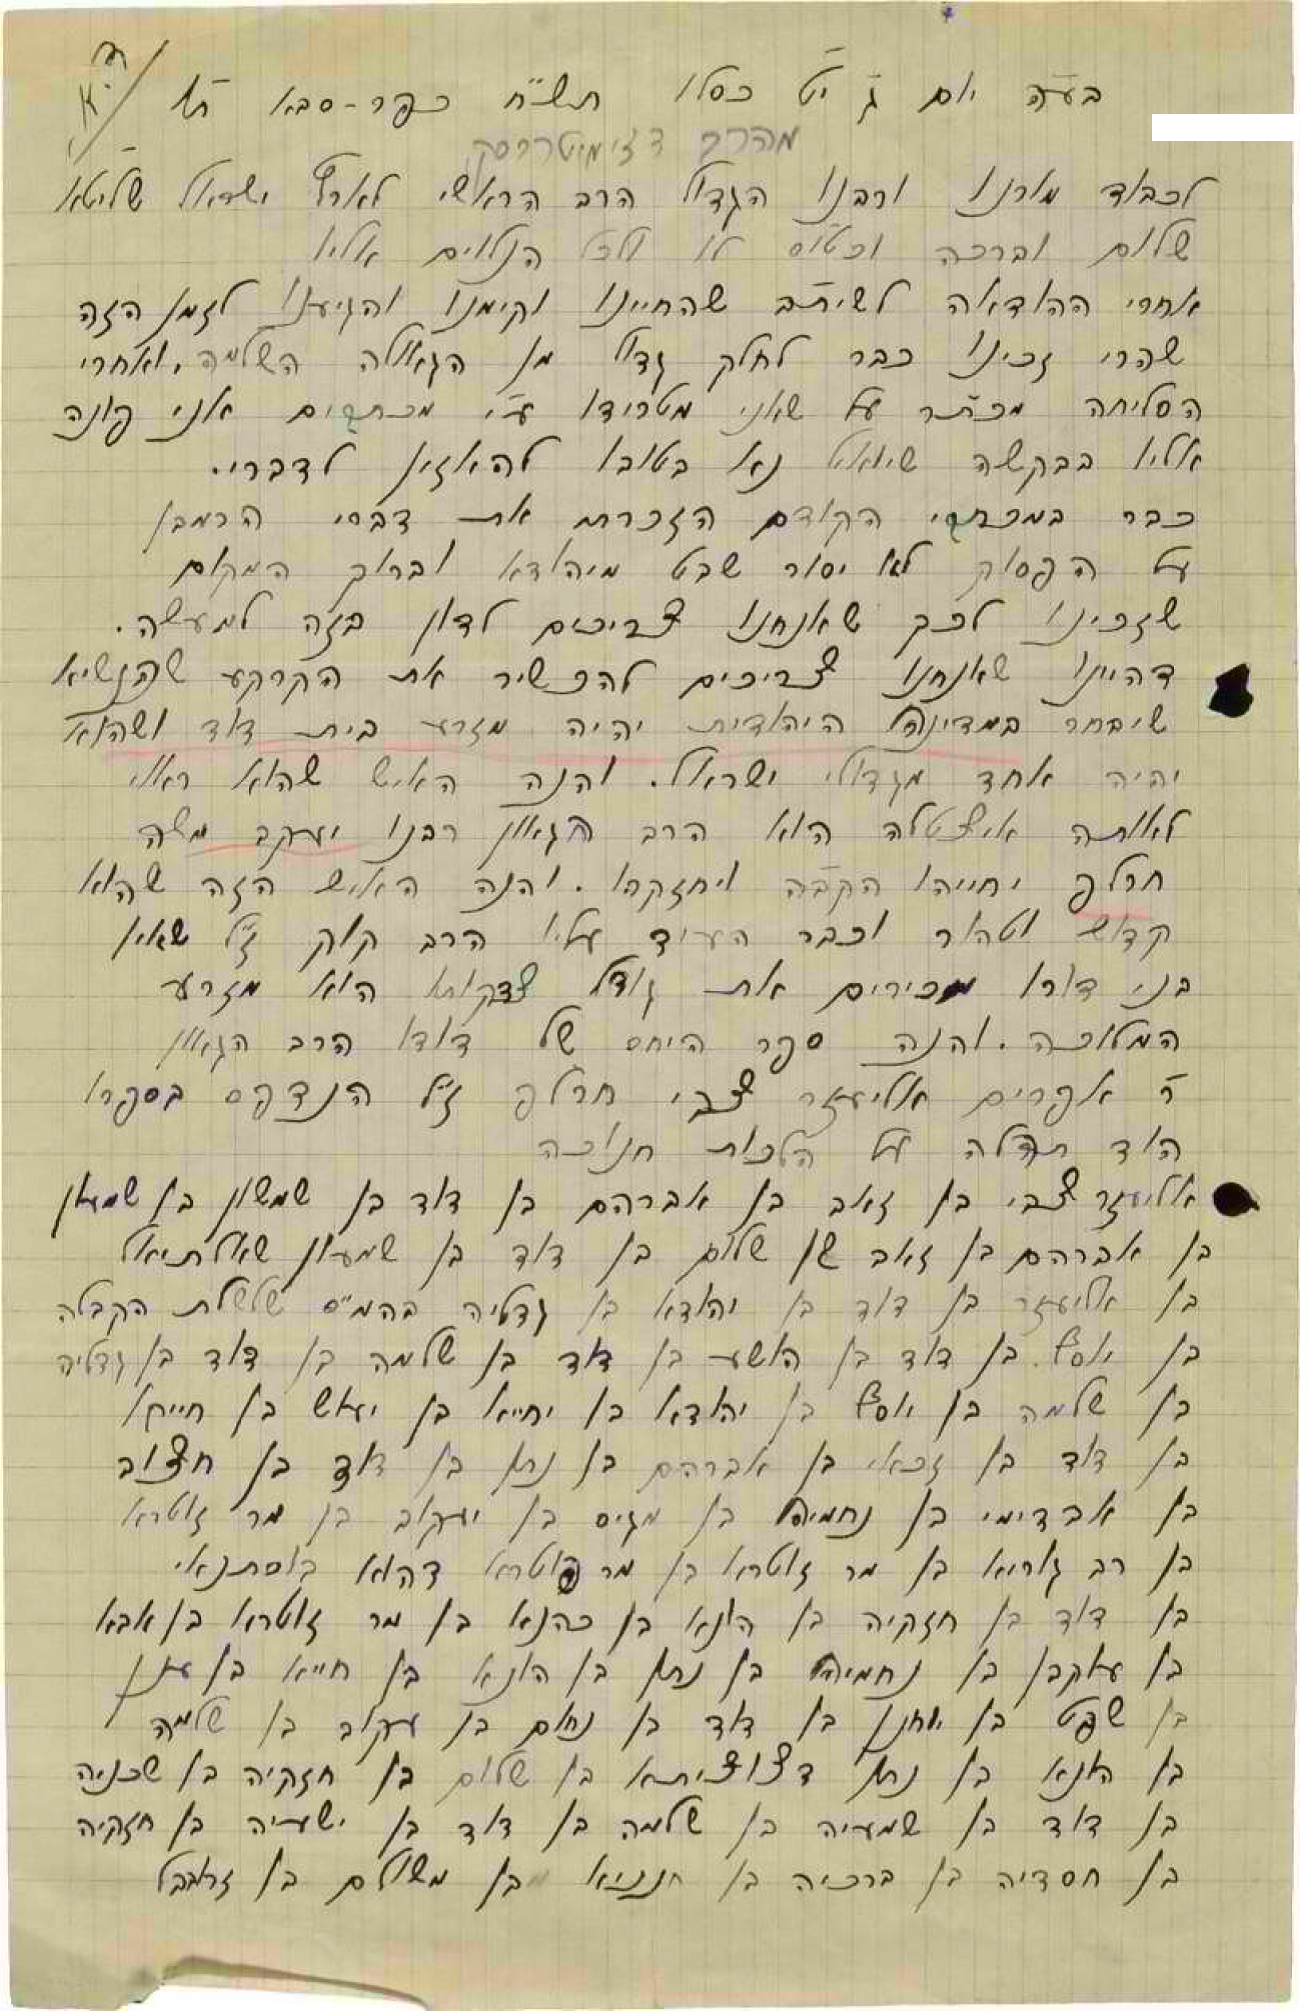 בע״ה יום ג׳ י״ט כסלו תש״ח כפר-סבא ת״ו
מהרב דזימיטרובסקי
לכבוד מורנו ורבנו הגדול הרב הראשי לארץ ישראל שליט״א
שלום וברכה וכט״ס לו ולכל הנלוים אליו
אחרי ההודאה לשי״ת שהחיינו וקימנו והגיענו לזמן הזה
שהרי זכינו כבר לחלק גדול מן הגאולה השלמה. ואחרי
הסליחה מכת״ר על שאני מטרידו ע״י מכתבים אני פונה
אליו בבקשה שיואיל נא בטובו להאזין לדברי.
כבר במכתבי הקודם הזכרתי את דברי הרמבן
על הפסוק לא יסור שבט מיהודא וברוך המקום
שזכינו לכך שאנחנו צריכים לדון בזה למעשה.
דהיינו שאנחנו צריכים להכשיר את הקרקע שהנשיא
שיבחר במדינה היהודית יהיה מזרע בית דוד ושהוא
יהיה אחד מגדולי ישראל. והנה האיש שהוא ראוי
לאותה איצטלה הוא הרב הגאון רבנו יעקב משה
חרלפ יחייהו הקב״ה ויחזקהו. והנה האיש הזה שהוא
קדוש וטהור וכבר העיד עליו הרב קוק ז״ל שאין
בני דורו מכירים את גודל צדקותו הוא מזרע
המלוכה. והנה ספר היחס של דודו הרב הגאון
ר׳ אפרים אליעזר צבי חרלפ ז״ל הנדפס בספרו
הוד תהלה על הלכות חנוכה
אליעזר צבי בן זאב בן אברהם בן דוד בן שמשון בן שמעון
בן אברהם בן זאב בן שלום בן דוד בן שמעון שאלתיאל
בן אליעזר בן דוד בן יהודא בן גדליה בהמ״ס שלשלת הקבלה
בן יוסף בן דוד בן הושע בן דוד בן שלמה בן דוד בן גדליה
בן שלמה בן יוסף בן יהודא בן יחייא בן יעיש בן חייקא
בן דוד בן זכאי בן אברהם בן נתן בן דוד בן חצוב
בן אבדימי בן נחמיה בן מגיס בן יעקוב בן מר זוטרא
בן רב גוריא בן מר זוטרא בן מר זוטרא דהוא בוסתנאי
בן דוד בן חזקיה בן הונא בן כהנא בן מר זוטרא בן אבא
בן עוקבן בן נחמיה בן נתן בן הונא בן חייא בן ענן
בן שפט בן יוחנן בן דוד בן נחום בן עקוב בן שלמה
בן הונא בן נתן דצוציתא בן שלום בן חזקיה בן שכניה
בן דוד בן שמעיה בן שלמה בן דוד בן ישעיה בן חזקיה
בן חסדיה בן ברכיה בן חנניא בן משולם בן זרובבל